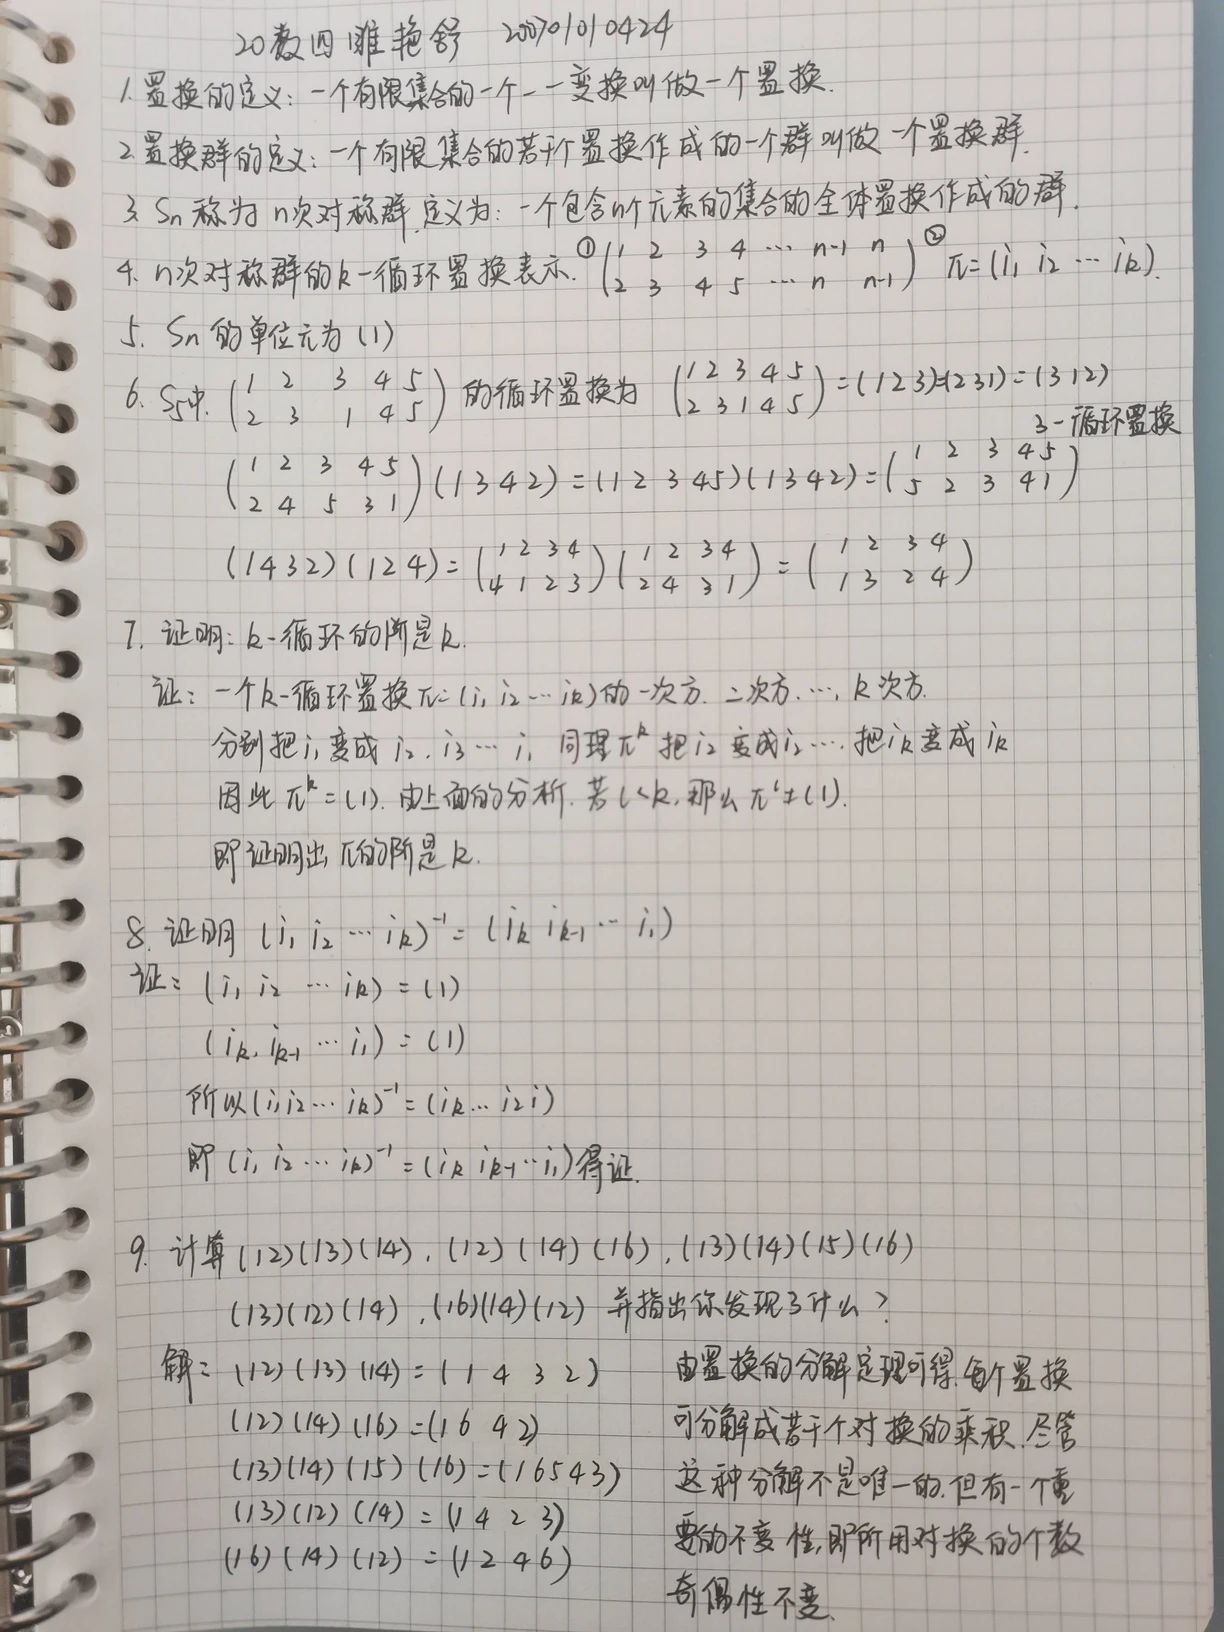 20数四 雒艳舒 20070101 0424
1. 置换的定义: 一个有限集合的一个一一变换叫做一个置换.
2. 置换群的定义: 一个有限集合的若干个置换作成的一个群叫做一个置换群.
3. Sn称为n次对称群,定义为: 一个包含n个元素的集合的全体置换作成的群.
4. n次对称群的k-循环置换表示. ① (1 2 3 4 … n-1 n / 2 3 4 5 … n n-1) ② π=(i₁ i₂ … iₖ).
5. Sn的单位元为(1)
6. S₅中. (1 2 3 4 5 / 2 3 1 4 5) 的循环置换为 (1 2 3 4 5 / 2 3 1 4 5) =(123)=(231)=(312)
3-循环置换
(1 2 3 4 5 / 2 4 5 3 1)(1342)=(12345)(1342)=(1 2 3 4 5 / 5 2 3 4 1)
(1432)(124)=(1 2 3 4 / 4 1 2 3)(1 2 3 4 / 2 4 3 1)=(1 2 3 4 / 1 3 2 4)
7. 证明: k-循环的阶是k.
证: 一个k-循环置换π=(i₁ i₂ … iₖ)的一次方.二次方.…, k次方.
分别把i₁变成i₂.i₃…i₁ 同理πᵏ把i₂变成i₂….把iₖ变成iₖ
因此πᵏ=(1). 由上面的分析.若l<k,那么πˡ≠(1).
即证明出π的阶是k.
8. 证明 (i₁ i₂ … iₖ)⁻¹= (iₖ iₖ₋₁ … i₁)
证: (i₁ i₂ … iₖ)=(1)
(iₖ, iₖ₋₁ … i₁)=(1)
所以(i₁i₂…iₖ)⁻¹=(iₖ…i₂i)
即(i₁ i₂…iₖ)⁻¹=(iₖ iₖ₋₁…i₁)得证.
9. 计算(12)(13)(14),(12)(14)(16),(13)(14)(15)(16)
(13)(12)(14),(16)(14)(12) 并指出你发现了什么?
解: (12)(13)(14)=(1 4 3 2)
(12)(14)(16)=(1642)
(13)(14)(15)(16)=(16543)
(13)(12)(14)=(1423)
(16)(14)(12)=(1246)
由置换的分解定理可得.每个置换
可分解成若干个对换的乘积.尽管
这种分解不是唯一的.但有一个重
要的不变性,即所用对换的个数
奇偶性不变.